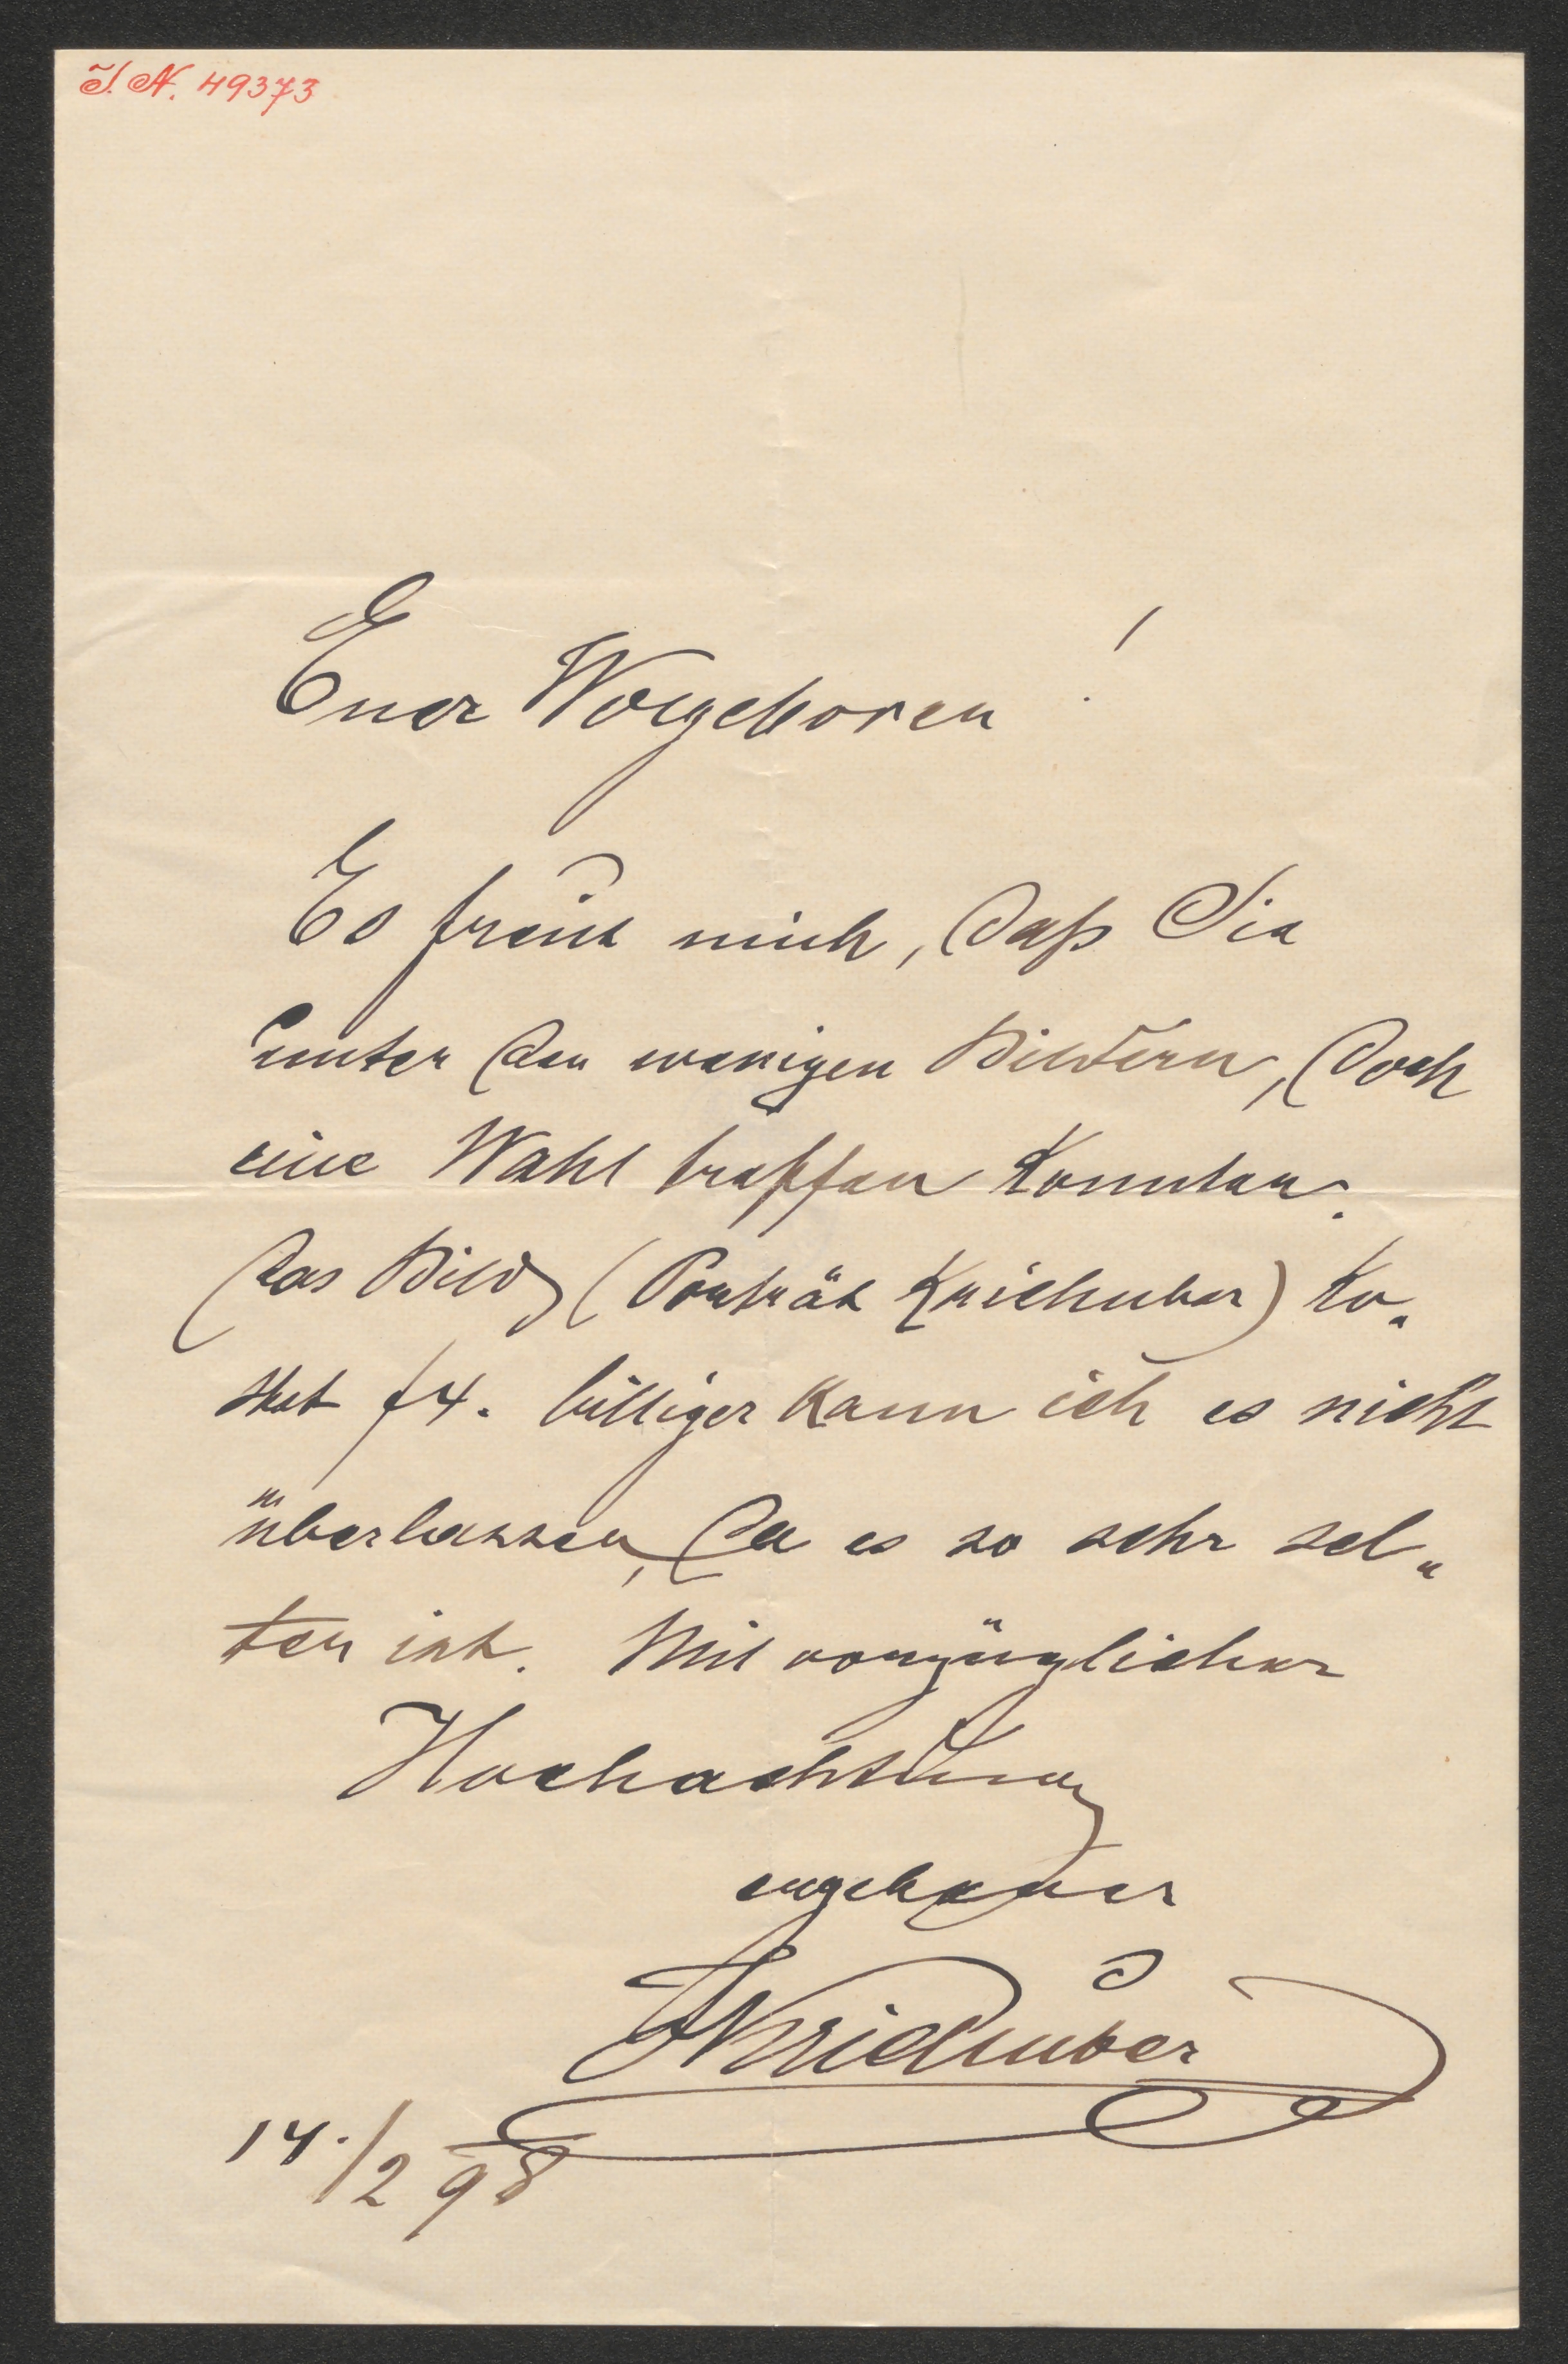 I. N. 49373
Euer Wolgeboren!
Es freut mich, daß Sie
unter den wenigen Bildern, doch
eine Wahl treffen konnten.
das Bild (Porträt Kriehuber) ko„
stet f 4. billiger kann ich es nicht
überlassen, da es so sehr sel„
ten ist. Mit vorzüglicher
Hochachtung
ergebener
Kriehuber
14./2 98